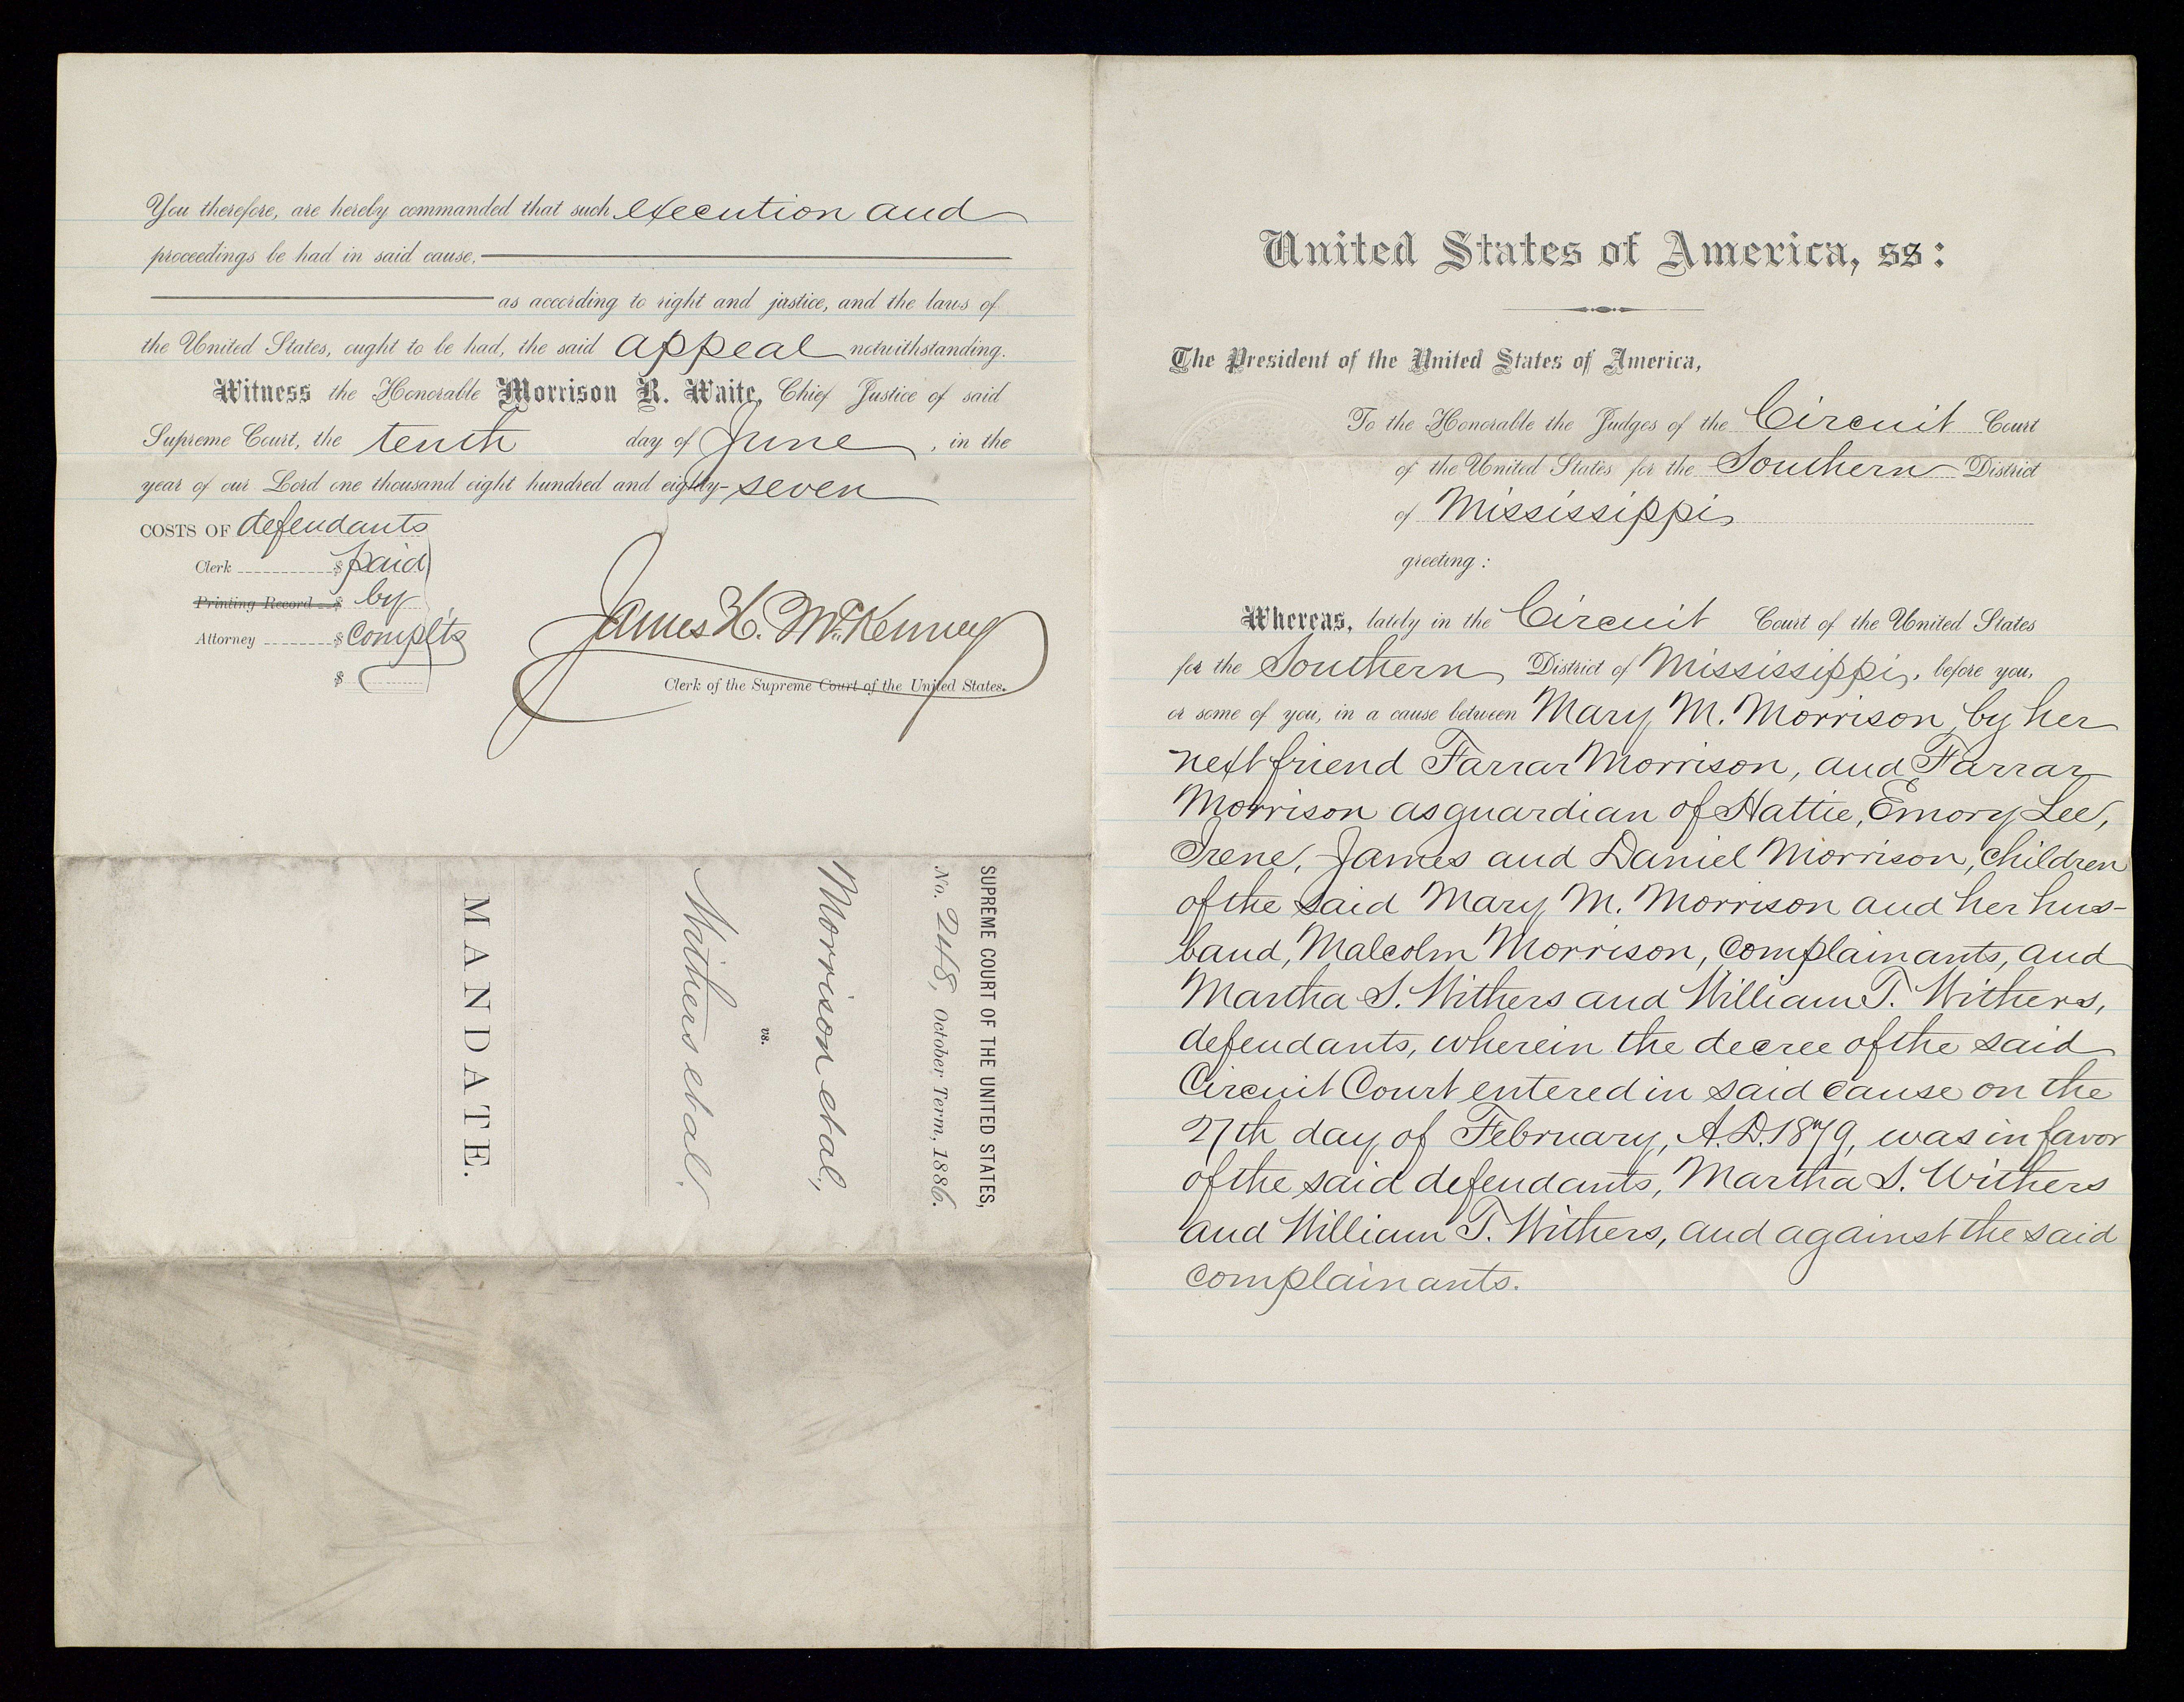 You therefore, are hereby commanded that such execution and
proceedings be had in said cause,
as according to right and justice, and the laws of
the United States, ought to be had, the said appeal notwithstanding.
Witness the Honorable Morrison R. Waite, Chief Justice of said
Supreme Court, the tenth day of June, in the
year of our Lord one thousand eight hundred and eighty-seven
COSTS OF defendants
Clerk $ paid
Printing Record $ by
Attorney $ Complts
$
James H. McKenney
Clerk of the Supreme Court of the United States.
SUPREME COURT OF THE UNITED STATES,
No. 248, October Term, 1886.
Morrison et al.,
vs.
Withers et al.
MANDATE.
United States of America, ss:
The President of the United States of America,
To the Honorable the Judges of the Circuit Court
of the United States for the Southern District
of Mississippi
greeting:
Whereas, lately in the Circuit Court of the United States
for the Southern District of Mississippi, before you,
or some of you, in a cause between Mary M. Morrison, by her
next friend Farrar Morrison, and Farrar
Morrison as guardian of Hattie, Emory Lee,
Irene, James and Daniel Morrison, children
of the said Mary M. Morrison and her hus-
band, Malcolm Morrison, Complainants, and
Martha S. Withers and William T. Withers,
defendants, wherein the decree of the said
Circuit Court entered in said cause on the
27th day of February, A.D. 1879, was in favor
of the said defendants, Martha S. Withers
and William T. Withers, and against the said
complainants.